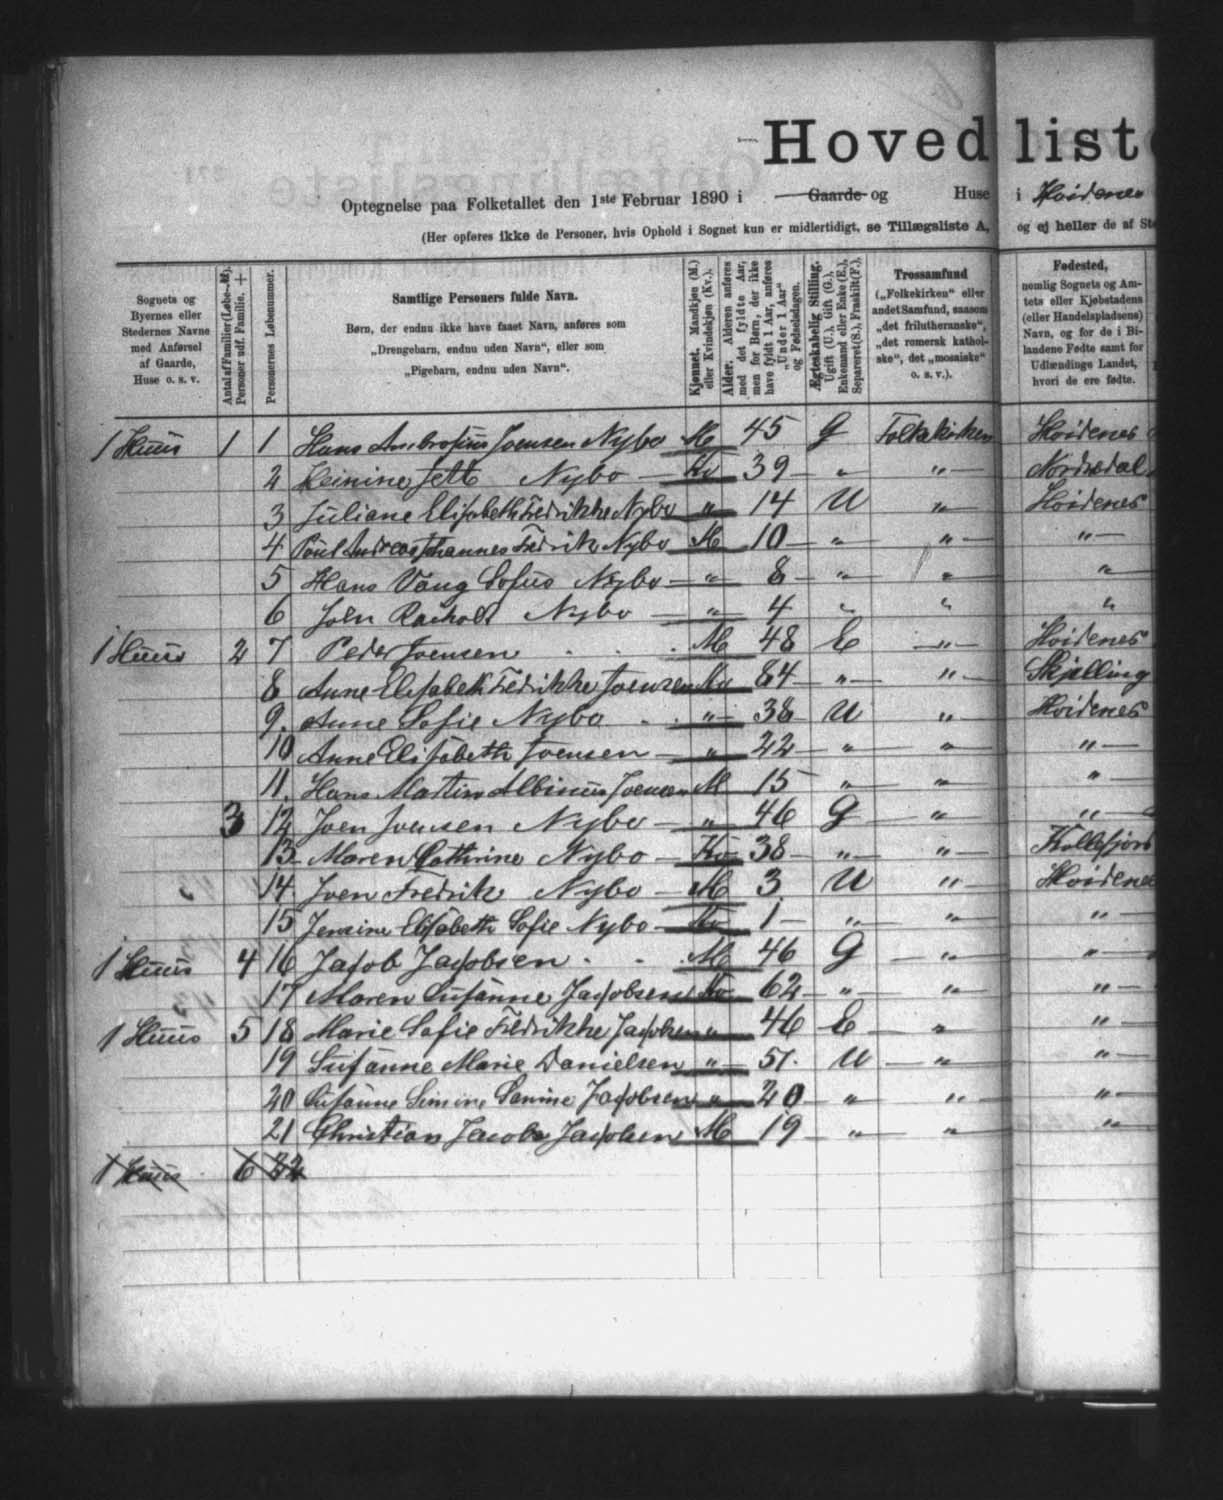 Hovedliste
Optegnelse paa Folketallet den 1ste Februar 1890 i Gaarde og Huse i Hvidenes
(Her opføres ikke de Personer, hvis Ophold i Sognet kun er midlertidigt, se Tillægsliste A, og ej heller de af
Sognets og Byernes eller Stedernes Navne med Anførsel af Gaarde, Huse o. s. v.
Antal af Familier (Løbe-№). Personer udf. Familie. +
Personernes Løbenummer.
Samtlige Personers fulde Navn.
Børn, der endnu ikke have faaet Navn, anføres som
„Drengebarn, endnu uden Navn“, eller som
„Pigebarn, endnu uden Navn“.
Kjønnet. Mandkjøn (M.) eller Kvindekjøn (Kv.).
Alder. Alderen anføres med det fyldte Aar, men for Børn, der ikke have fyldt 1 Aar, anføres „Under 1 Aar“ og Fødselsdagen.
Ægteskabelig Stilling. Ugift (U.), Gift (G.), Enkemand eller Enke (E.), Separeret (S.), Fraskilt (F.).
Trossamfund
(„Folkekirken“ eller andet Samfund, saasom „det frilutheranske“, „det romersk katholske“, det „mosaiske“ o. s. v.).
Fødested,
nemlig Sognets og Amtets eller Kjøbstadens (eller Handelspladsens) Navn, og for de i Bilandene Fødte samt for Udlændinge Landet, hvori de ere fødte.
1 Huus 1 1 Hans Ambrosius Joensen Nybo M 45 G Folkekirken Hvidenes
2 Heinine Jett Nybo Kv 39 " " Nordredal
3 Juliane Elisabeth Fredrikke Nybo " 14 U " Hvidenes
4 Poul Andreas Johannes Fredrik Nybo M 10 " " "
5 Hans Vang Sofus Nybo " 8 " " "
6 John Nybo " 4 " " "
1 Huus 2 7 Peder Joensen M 48 E " Hvidenes
8 Anne Elisabeth Fredrikke Joensen Kv 84 " " Skjelling
9 Anne Sofie Nybo " 38 U " Hvidenes
10 Anne Elisabeth Joensen " 22 " " "
11 Hans Martin Albinus Joensen M 15 " " "
3 12 Joen Joensen Nybo " 46 G " "
13 Maren Cathrine Nybo Kv 38 " " Kollefjord
14 Joen Fredrik Nybo M 3 U " Hvidenes
15 Jensine Elisabeth Sofie Nybo Kv 1 " " "
1 Huus 4 16 Jacob Jacobsen M 46 G " "
17 Maren Susanne Jacobsen Kv 62 " " "
1 Huus 5 18 Marie Sofie Fredrikke Jacobsen " 46 E " "
19 Susanne Marie Danielsen " 51 U " "
20 Susanne Simine Sanine Jacobsen " 20 " " "
21 Christian Jacob Jacobsen M 19 " " "
1 Huus 6 22